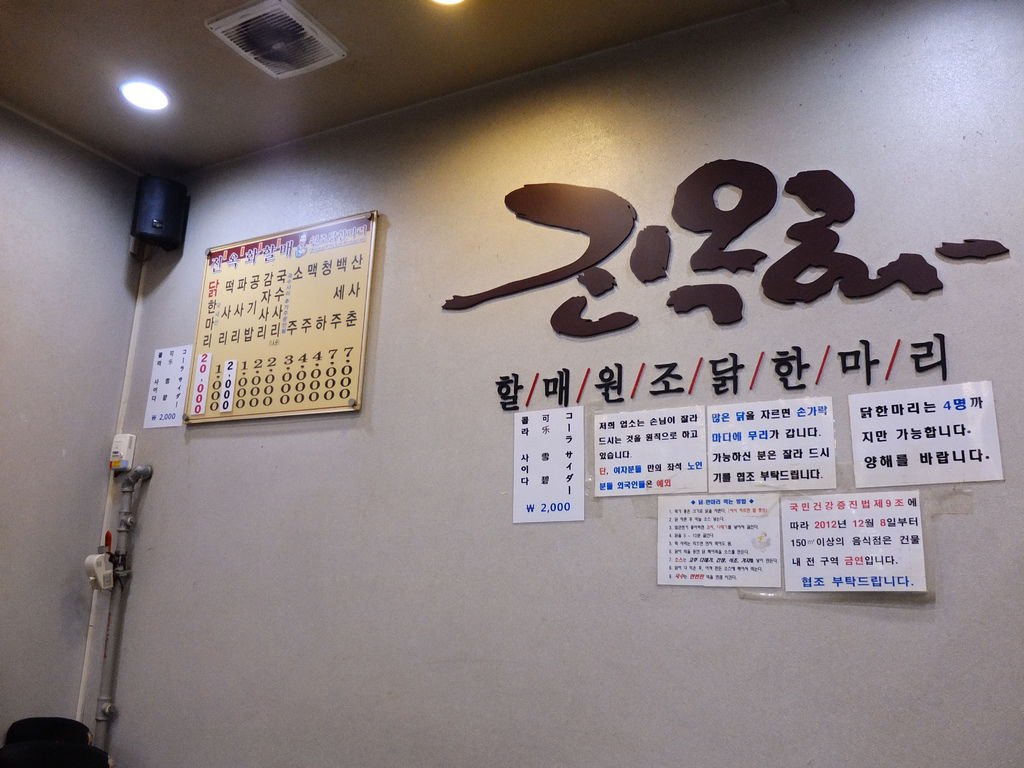 진옥화할매
원조닭한마리
닭한마리
떡사리
파사리
공기밥
감자사리
국수사리
소주
맥주
청하
백세주
산사춘
20,000
2,000
콜라 사이다
可乐 雪碧
コーラ サイダー
₩ 2,000
진옥화
할/매/원/조/닭/한/마/리
콜라 사이다
可乐 雪碧
コーラ サイダー
₩ 2,000
저희 업소는 손님이 잘라
드시는 것을 원칙으로 하고
있습니다.
단, 여자분들 만의 좌석 노인
분들 외국인들은 예외
많은 닭을 자르면 손가락
마디에 무리가 갑니다.
가능하신 분은 잘라 드시
기를 협조 부탁드립니다.
닭한마리는 4명까
지만 가능합니다.
양해를 바랍니다.
◆ 닭 한마리 먹는 방법 ◆
국민건강증진법제9조에
따라 2012년 12월 8일부터
150㎡이상의 음식점은 건물
내 전 구역 금연입니다.
협조 부탁드립니다.